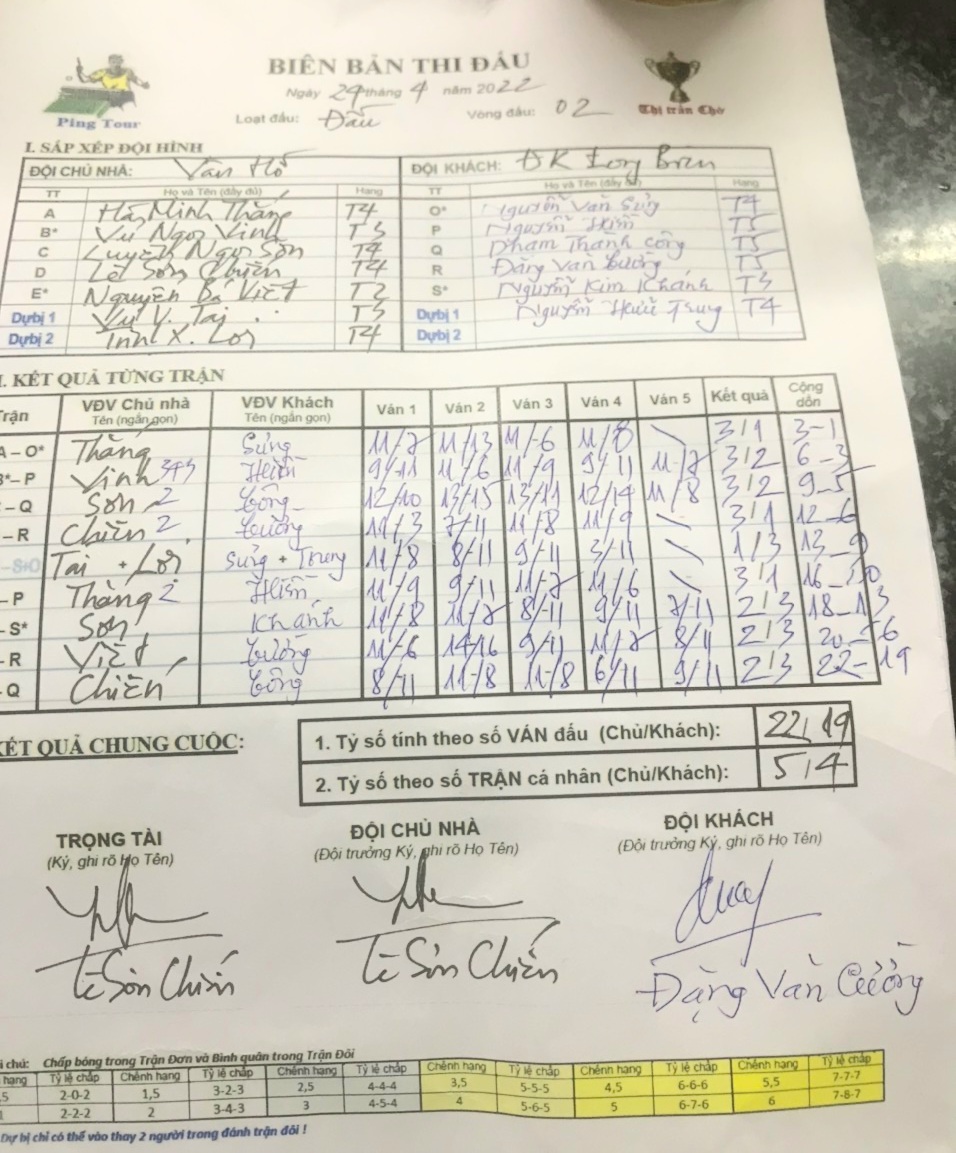 BIÊN BẢN THI ĐẤU
Ping Tour
Ngày 24 tháng 4 năm 2022
Thị trấn Chờ
Loạt đấu: Đấu Vòng đấu: 02
I. SẮP XẾP ĐỘI HÌNH
ĐỘI CHỦ NHÀ: Vân Hồ ĐỘI KHÁCH: ĐK Long Biên
TT Họ và Tên (đầy đủ) Hạng TT Họ và Tên (đầy đủ) Hạng
A Hà Minh Thắng T4 O* Nguyễn Văn Sửng T4
B* Vũ Ngọc Vinh T3 P Nguyễn Hiền T5
C Luyện Ngọc Sơn T4 Q Phạm Thanh Công T5
D Lê Sơn Chiến T4 R Đặng Văn Cường T5
E* Nguyễn Bá Việt T3 S* Nguyễn Kim Khánh T3
Dự bị 1 Vũ V. Tài T3 Dự bị 1 Nguyễn Hữu Trung T4
Dự bị 2 Trinh X. Lợi T4 Dự bị 2
I. KẾT QUẢ TỪNG TRẬN
Trận VĐV Chủ nhà Tên (ngắn gọn) VĐV Khách Tên (ngắn gọn) Ván 1 Ván 2 Ván 3 Ván 4 Ván 5 Kết quả Cộng dồn
A – O* Thắng Sửng 11/7 11/13 11/6 11/8 \ 3/1 3-1
B*– P Vinh 343 Hiền 9/11 11/6 11/9 9/11 11/7 3/2 6-3
– Q Sơn 2 Công 12/10 13/15 13/11 12/14 11/8 3/2 9-5
– R Chiến 2 Cường 11/3 7/11 11/8 11/9 \ 3/1 12-6
Tài + Lợi Sửng + Trung 11/8 8/11 9/11 3/11 \ 1/3 13-9
– P Thắng 2 Hiền 11/9 9/11 11/7 11/6 \ 3/1 16-10
– S* Sơn Khánh 11/8 11/7 8/11 9/11 7/11 2/3 18-13
– R Việt Cường 11/6 14/16 9/11 11/7 8/11 2/3 20-16
Q Chiến Công 8/11 11/8 11/8 6/11 9/11 2/3 22-19
KẾT QUẢ CHUNG CUỘC:
1. Tỷ số tính theo số VÁN đấu (Chủ/Khách): 22/19
2. Tỷ số theo số TRẬN cá nhân (Chủ/Khách): 5/4
TRỌNG TÀI ĐỘI CHỦ NHÀ ĐỘI KHÁCH
(Ký, ghi rõ Họ Tên) (Đội trưởng Ký, ghi rõ Họ Tên) (Đội trưởng Ký, ghi rõ Họ Tên)
Lê Sơn Chiến Lê Sơn Chiến Đặng Văn Cường
chú: Chấp bóng trong Trận Đơn và Bình quân trong Trận Đôi
hạng Tỷ lệ chấp Chênh hạng Tỷ lệ chấp Chênh hạng Tỷ lệ chấp Chênh hạng Tỷ lệ chấp Chênh hạng Tỷ lệ chấp Chênh hạng Tỷ lệ chấp
2-0-2 1,5 3-2-3 2,5 4-4-4 3,5 5-5-5 4,5 6-6-6 5,5 7-7-7
2-2-2 2 3-4-3 3 4-5-4 4 5-6-5 5 6-7-6 6 7-8-7
Dự bị chỉ có thể vào thay 2 người trong đánh trận đôi !